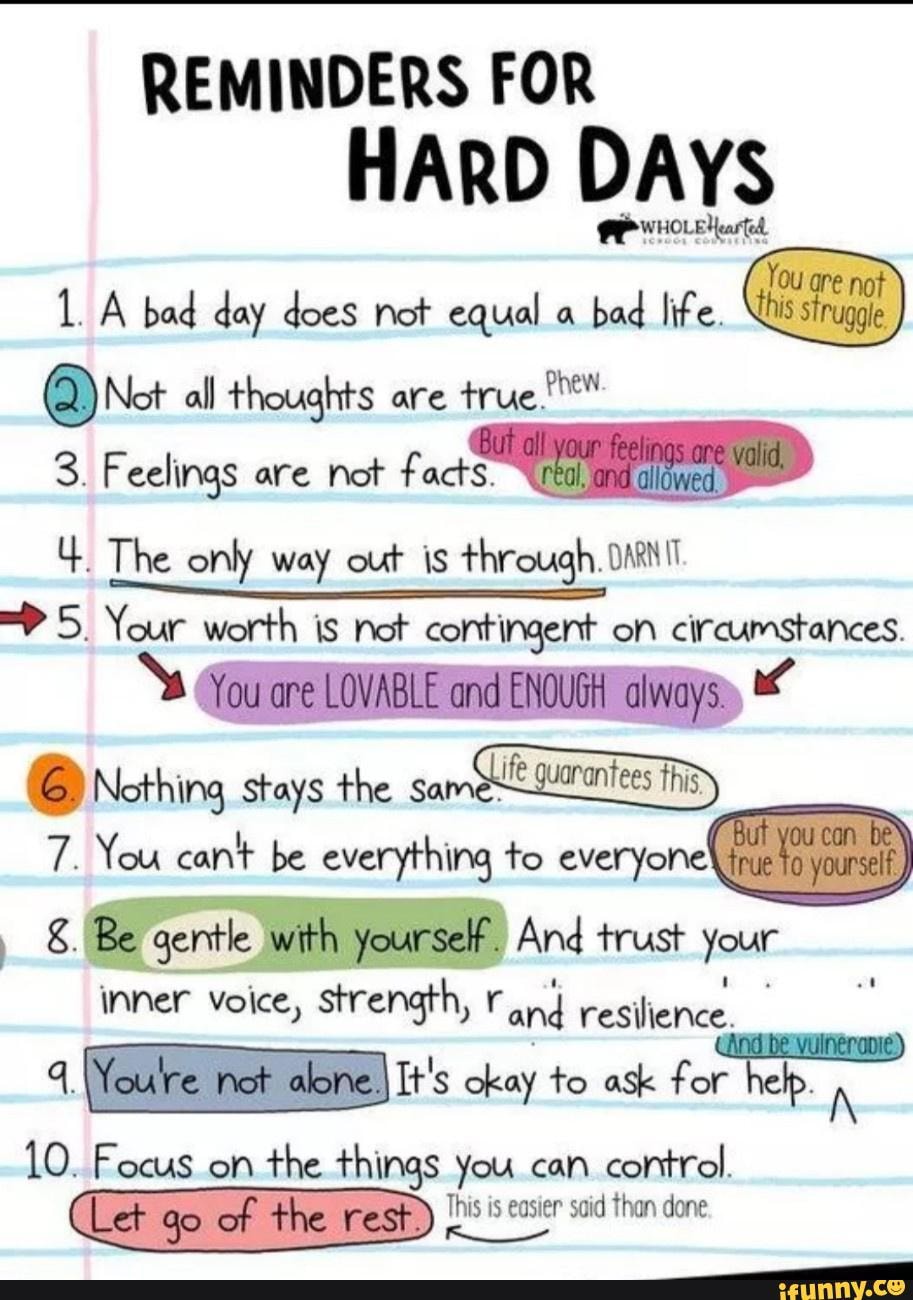 REMINDERS FOR
HARD DAYS
WHOLEHearted
SCHOOL COUNSELING
1. A bad day does not equal a bad life.
You are not
this struggle.
2. Not all thoughts are true. Phew.
3. Feelings are not facts.
But all your feelings are valid,
real, and allowed.
4. The only way out is through. DARN IT.
5. Your worth is not contingent on circumstances.
You are LOVABLE and ENOUGH always.
6. Nothing stays the same. Life guarantees this.
7. You can't be everything to everyone.
But you can be
true to yourself.
8. Be gentle with yourself. And trust your
inner voice, strength, r and resilience.
And be vulnerable.
9. You're not alone. It's okay to ask for help.
10. Focus on the things you can control.
Let go of the rest. This is easier said than done.
ifunny.co